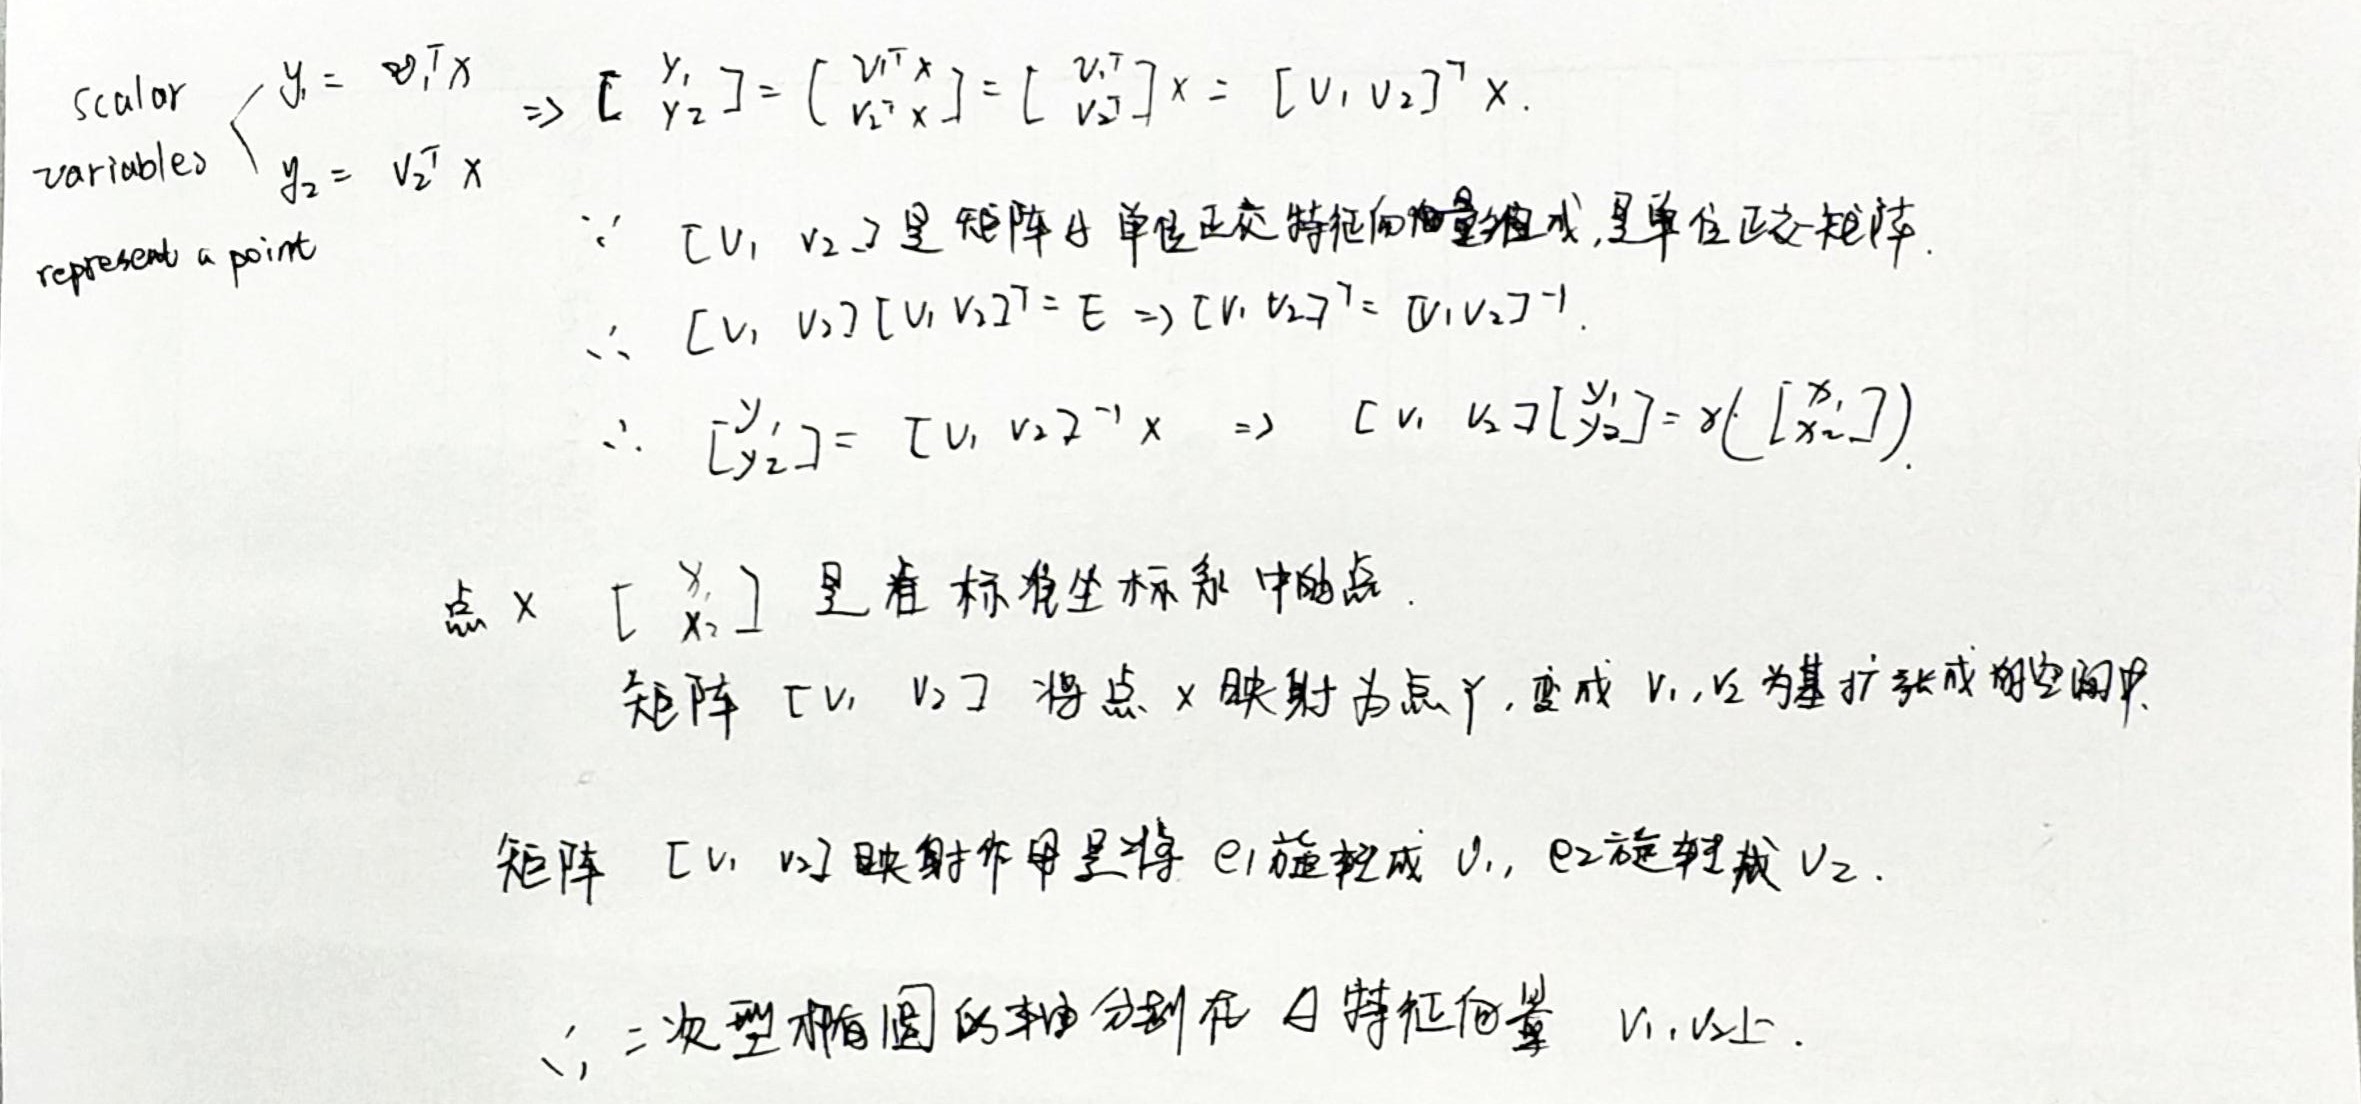 scalar variables represent a point
y₁ = v₁ᵀx
y₂ = v₂ᵀ x
⇒ [y₁ y₂] = [v₁ᵀx v₂ᵀx] = [v₁ᵀ v₂ᵀ] x = [v₁ v₂]ᵀ x.
∵ [v₁ v₂]是矩阵A单位正交特征向量组成,是单位正交矩阵.
∴ [v₁ v₂][v₁ v₂]ᵀ = E ⇒ [v₁ v₂]ᵀ = [v₁ v₂]⁻¹.
∴ [y₁ y₂] = [v₁ v₂]⁻¹ x ⇒ [v₁ v₂][y₁ y₂] = x([x₁ x₂]).
点 x [x₁ x₂] 是 标准坐标系中的点.
矩阵 [v₁ v₂] 将点 x 映射为点 y, 变成 v₁, v₂ 为基扩张成的空间中.
矩阵 [v₁ v₂] 映射作用是将 e₁旋转成 v₁, e₂旋转成 v₂.
∴ 二次型椭圆的轴分别在 A 特征向量 v₁, v₂上.